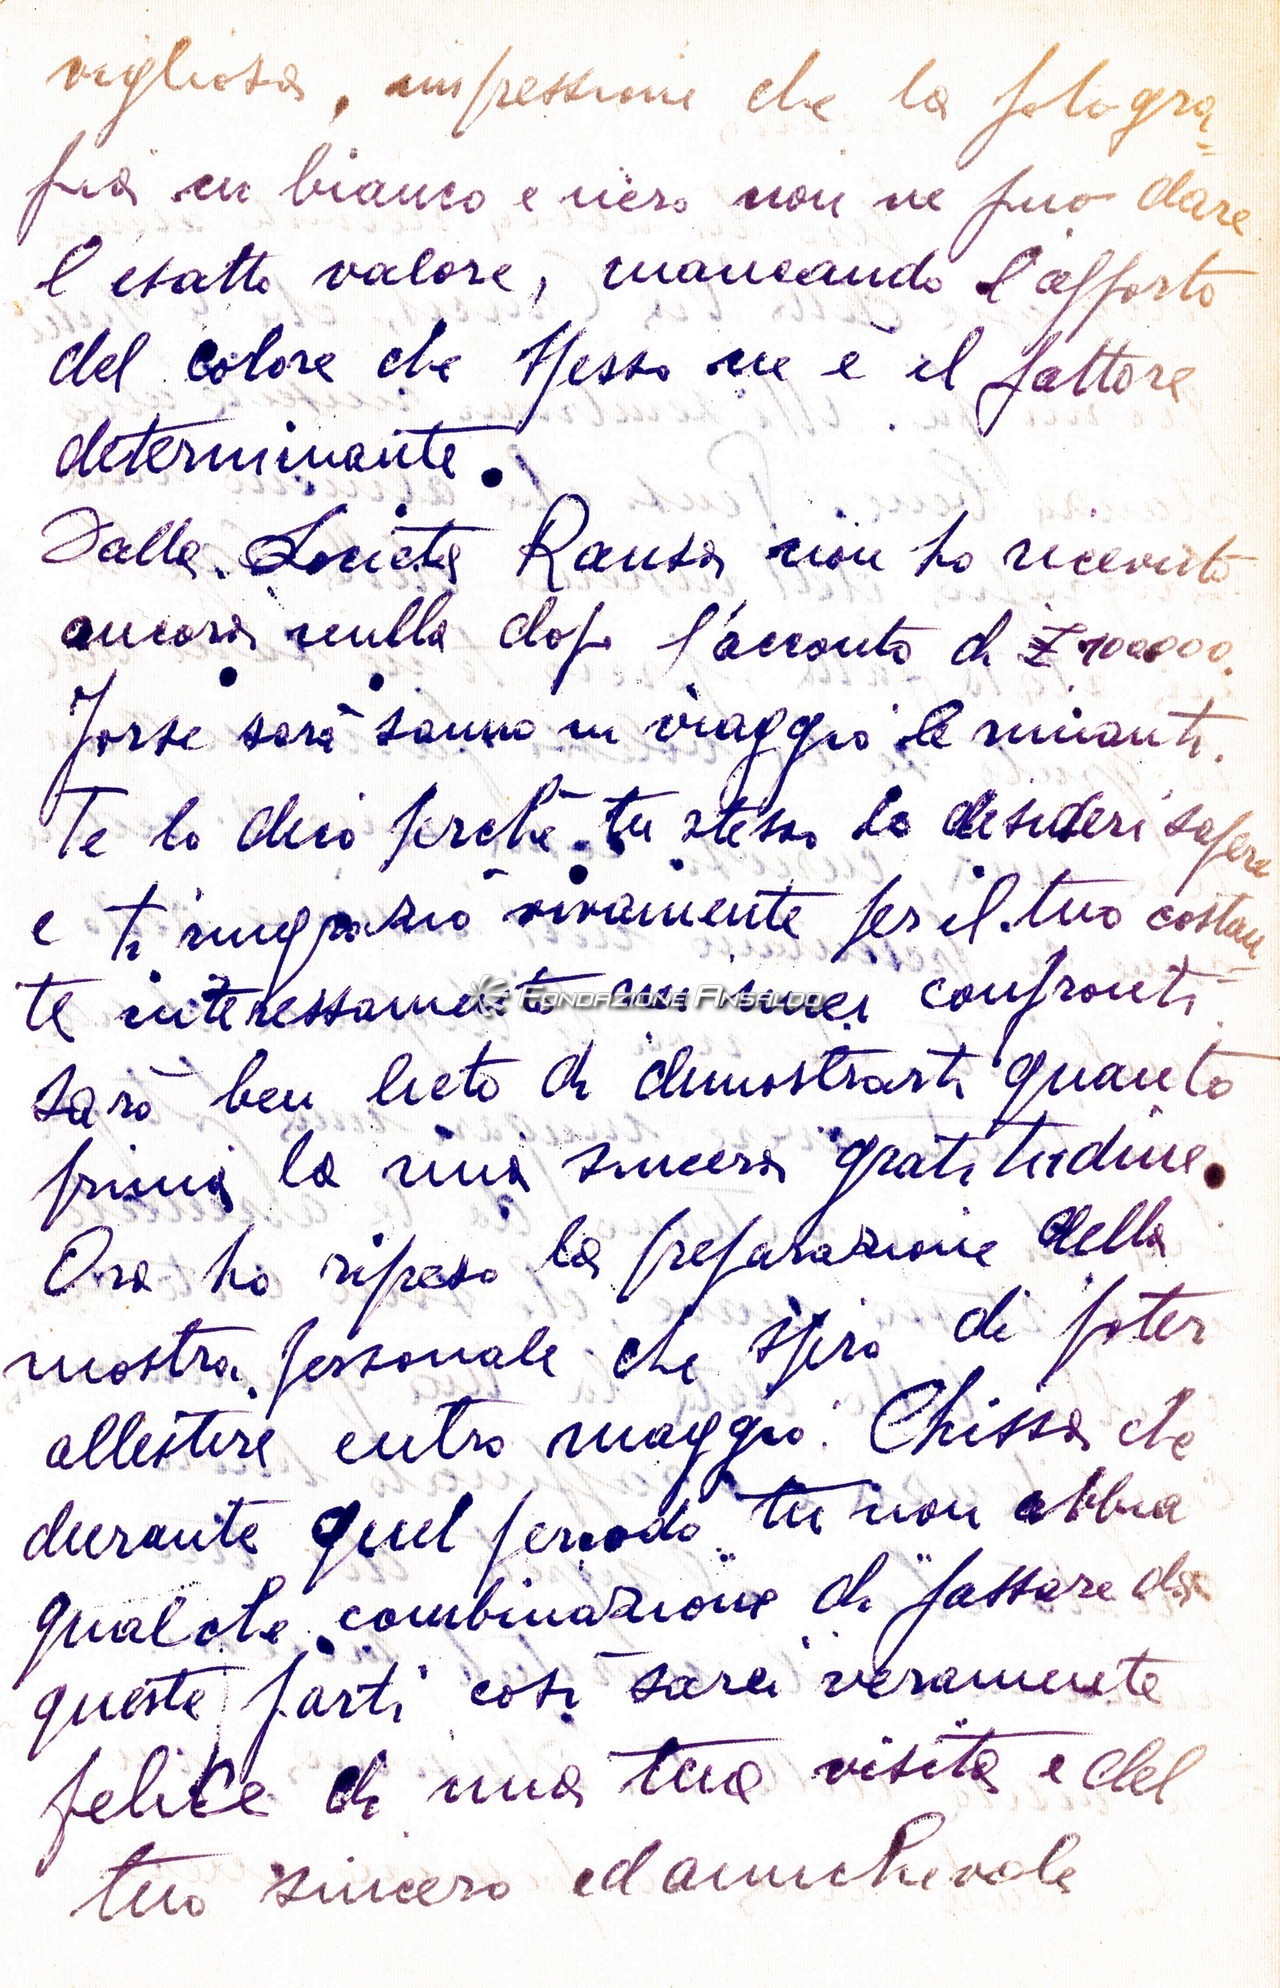 vigliosa, impressione che la fotogra=
fia in bianco e nero non ne può dare
l'esatto valore, mancando l'apporto
del colore che spesso ne è il fattore
determinante.
Dalla Società Ransa non ho ricevuto
ancora nulla dopo l'acconto di £ 100000.
Forse sarà sanno in viaggio le rimanti.
Te lo dico perchè tu stesso lo desideri sapere
e ti ringrazio vivamente per il tuo costan=
te interessamento nei miei confronti
sarò ben lieto di dimostrarti quanto
prima la mia sincera gratitudine.
Ora ho ripreso la preparazione della
mostra personale che spero di poter
allestire entro maggio. Chissà che
durante quel periodo tu non abbia
qualche combinazione di passare da
queste parti così sarei veramente
felice di una tua visita e del
tuo sincero ed amichevole
FONDAZIONE ANSALDO